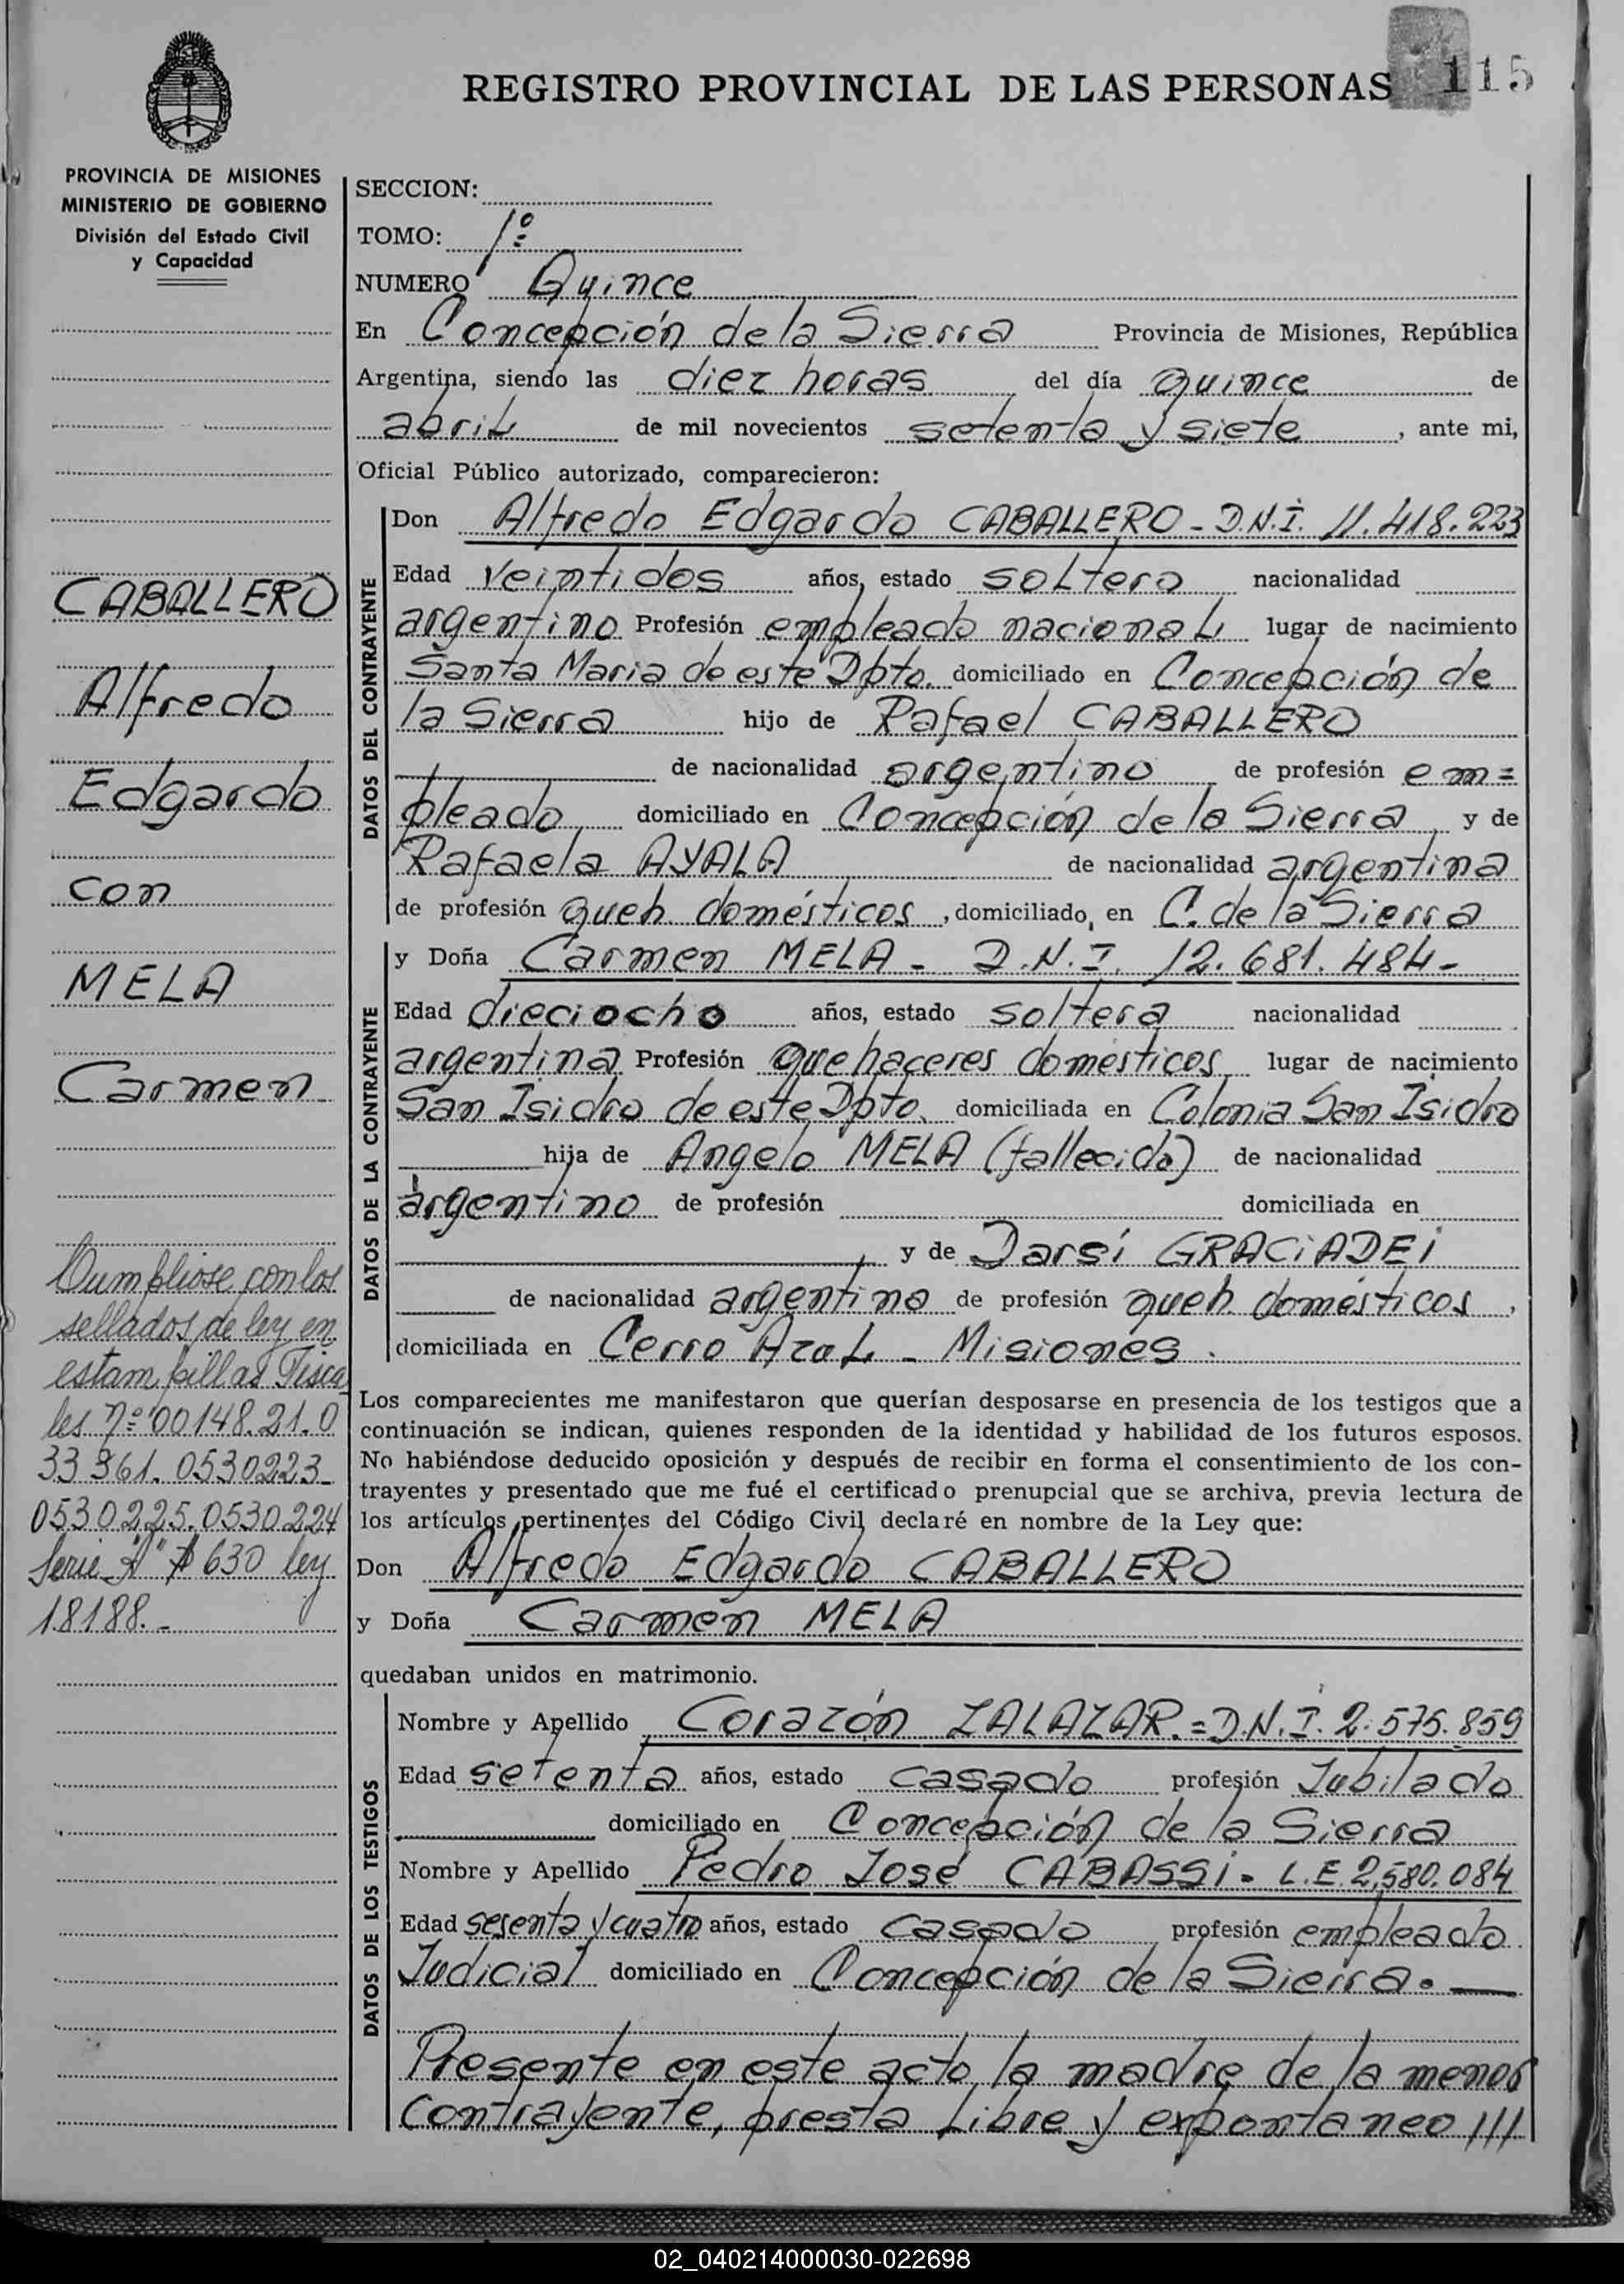 REGISTRO PROVINCIAL DE LAS PERSONAS 115
PROVINCIA DE MISIONES
MINISTERIO DE GOBIERNO
División del Estado Civil
y Capacidad
CABALLERO
Alfredo
Edgardo
con
MELA
Carmen
Cumpliose con los
sellados de ley en
estampillas Fisca
les nº 00148.21.0
33 361. 0530223-
0530225.0530224
Serie "A" $ 630 ley
18188.-
SECCION:
TOMO: 1º
NUMERO Quince
En Concepción de la Sierra Provincia de Misiones, República
Argentina, siendo las diez horas del día quince de
abril de mil novecientos setenta y siete, ante mi,
Oficial Público autorizado, comparecieron:
DATOS DEL CONTRAYENTE
Don Alfredo Edgardo CABALLERO - D.N.I. 11.418.223
Edad veintidos años, estado soltero nacionalidad
argentino Profesión empleado nacional lugar de nacimiento
Santa Maria de este Dpto. domiciliado en Concepción de
la Sierra hijo de Rafael CABALLERO
de nacionalidad argentino de profesión em=
pleado domiciliado en Concepción de la Sierra, y de
Rafaela AYALA de nacionalidad argentina
de profesión queh domésticos, domiciliado, en C. de la Sierra
DATOS DE LA CONTRAYENTE
y Doña Carmen MELA - D.N.I. 12.681.484-
Edad dieciocho años, estado soltera nacionalidad
argentina Profesión quehaceres domésticos lugar de nacimiento
San Isidro de este Dpto. domiciliada en Colonia San Isidro
hija de Angelo MELA (fallecido) de nacionalidad
argentino de profesión domiciliada en
y de Darsi GRACIADEI
de nacionalidad argentina de profesión queh domésticos,
domiciliada en Cerro Azul - Misiones.
Los comparecientes me manifestaron que querían desposarse en presencia de los testigos que a
continuación se indican, quienes responden de la identidad y habilidad de los futuros esposos.
No habiéndose deducido oposición y después de recibir en forma el consentimiento de los con-
trayentes y presentado que me fué el certificado prenupcial que se archiva, previa lectura de
los artículos pertinentes del Código Civil declaré en nombre de la Ley que:
Don Alfredo Edgardo CABALLERO
y Doña Carmen MELA
quedaban unidos en matrimonio.
DATOS DE LOS TESTIGOS
Nombre y Apellido Corazón ZALAZAR.=D.N.I. 2.575.859
Edad setenta años, estado casado profesión Jubilado
domiciliado en Concepción de la Sierra
Nombre y Apellido Pedro José CABASSI - L.E. 2.580.084
Edad sesenta y cuatro años, estado casado profesión empleado
Judicial domiciliado en Concepción de la Sierra.
Presente en este acto la madre de la menor
contrayente, presta libre y expontaneo ///
02_040214000030-022698